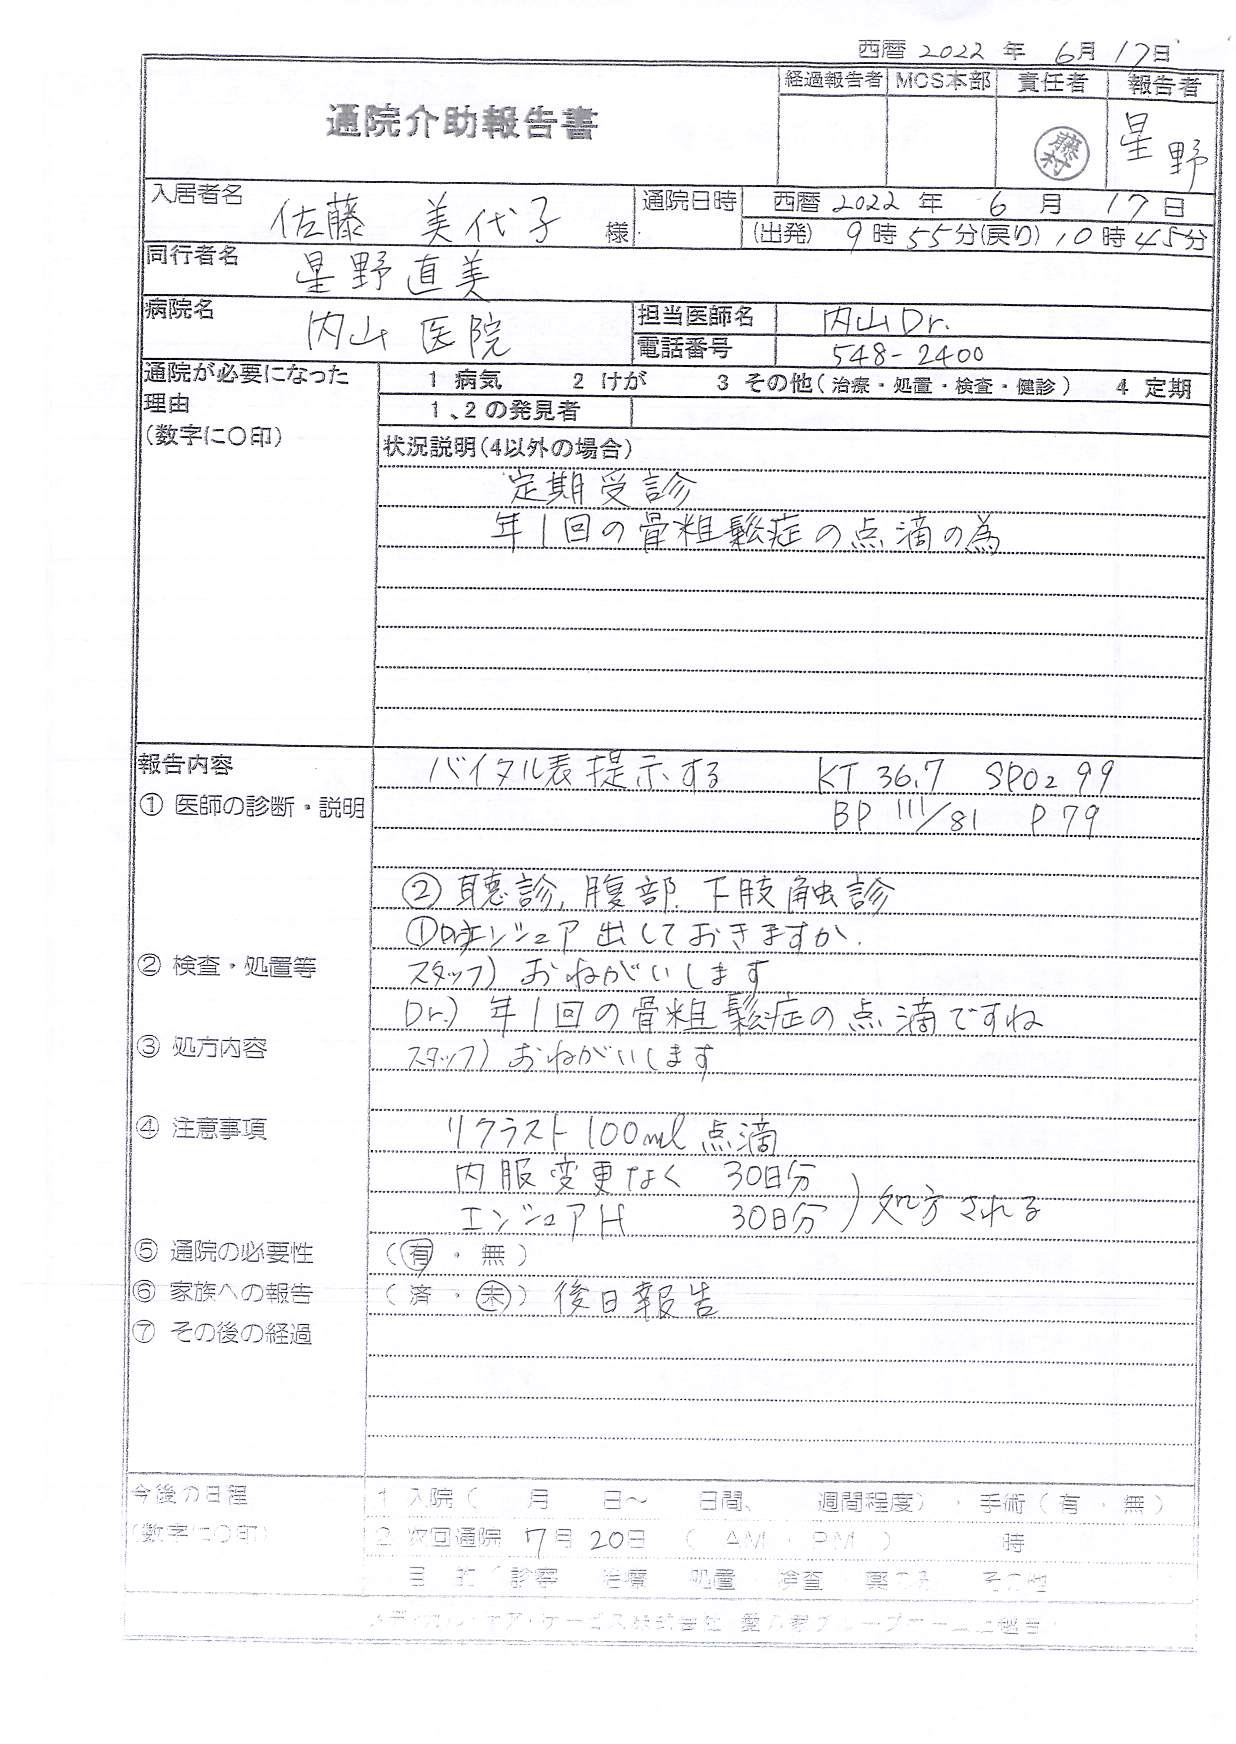 西暦 2022 年 6月 17日
通院介助報告書
経過報告者 MCS本部 責任者 報告者
藤村 星野
入居者名 佐藤 美代子 様
通院日時 西暦 2022 年 6 月 17 日
(出発) 9時 55分(戻り) 10時 45分
同行者名 星野直美
病院名 内山医院
担当医師名 内山Dr.
電話番号 548-2400
通院が必要になった
理由
(数字に〇印)
1 病気 2 けが 3 その他(治療・処置・検査・健診) 4 定期
1、2の発見者
状況説明(4以外の場合)
定期受診
年1回の骨粗鬆症の点滴の為
報告内容 バイタル表提示する KT 36.7 SPO2 99
① 医師の診断・説明 BP 111/81 P 79
② 聴診, 腹部. 下肢触診
① エンシュア出しておきますか.
② 検査・処置等 スタッフ) おねがいします
Dr.) 年1回の骨粗鬆症の点滴ですね
③ 処方内容 スタッフ) おねがいします
④ 注意事項 リクラスト100ml点滴
内服変更なく 30日分
エンシュアH 30日分 ) 処方される
⑤ 通院の必要性 (有・無)
⑥ 家族への報告 (済・未) 後日報告
⑦ その後の経過
今後の日程 1 入院( 月 日~ 日間、 週間程度)・手術(有・無)
(数字に〇印) 2 次回通院 7月20日 ( AM・PM ) 時
目的(診察 治療 処置 検査 薬のみ その他
メディカル・ケア・サービス株式会社 愛の家グループホーム上越